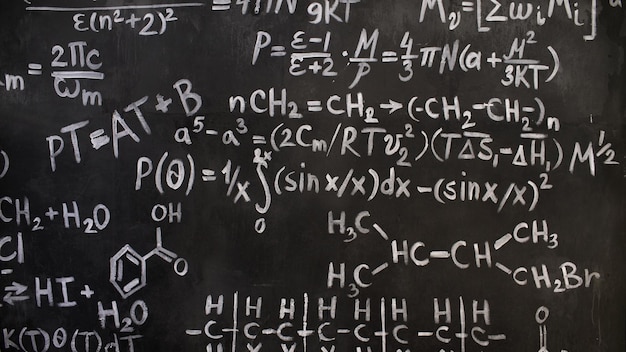 ε(n²+2)²
9KT
M₂=[Σωᵢ Mᵢ]
m = 2πc/ωₘ
P = ε-1/ε+2 · M/P = 4/3 πN(a + M²/3KT)
PT=AT+B
nCH₂=CH₂→(-CH₂-CH₂-)ₙ
a⁵-a³=(2Cₘ/RTν₂²)(TΔS₁-ΔH₁)M^½
P(Θ)=1/x ∫₀²ˣ(sinx/x)dx-(sinx/x)²
CH₂+H₂O
OH
O
H₃C
H₃C
HC-CH
CH₃
CH₂Br
Cl
⇄HI+
H₂O
H H H H H H H H
-C-C-C-C-C-C-C-C-
O
K(T)Θ(T)dt=